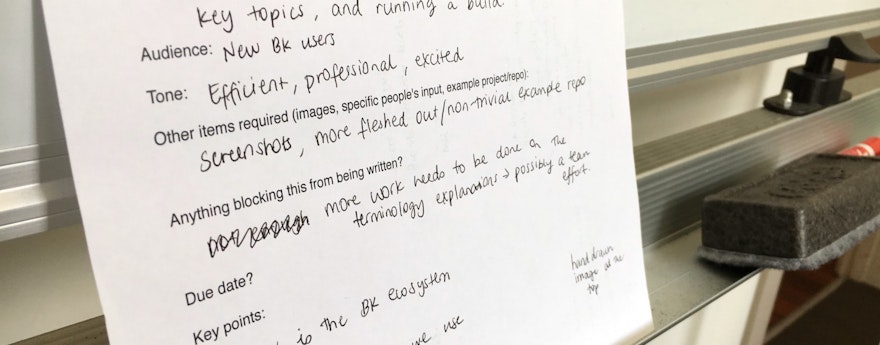 key topics, and running a build.
Audience: New BK users
Tone: Efficient, professional, excited
Other items required (images, specific people's input, example project/repo):
Screenshots, more fleshed out/non-trivial example repo
Anything blocking this from being written?
more work needs to be done on the
terminology explanations → possibly a team
effort.
Due date?
hand drawn
image at the
top
Key points:
is the BK ecosystem
we use